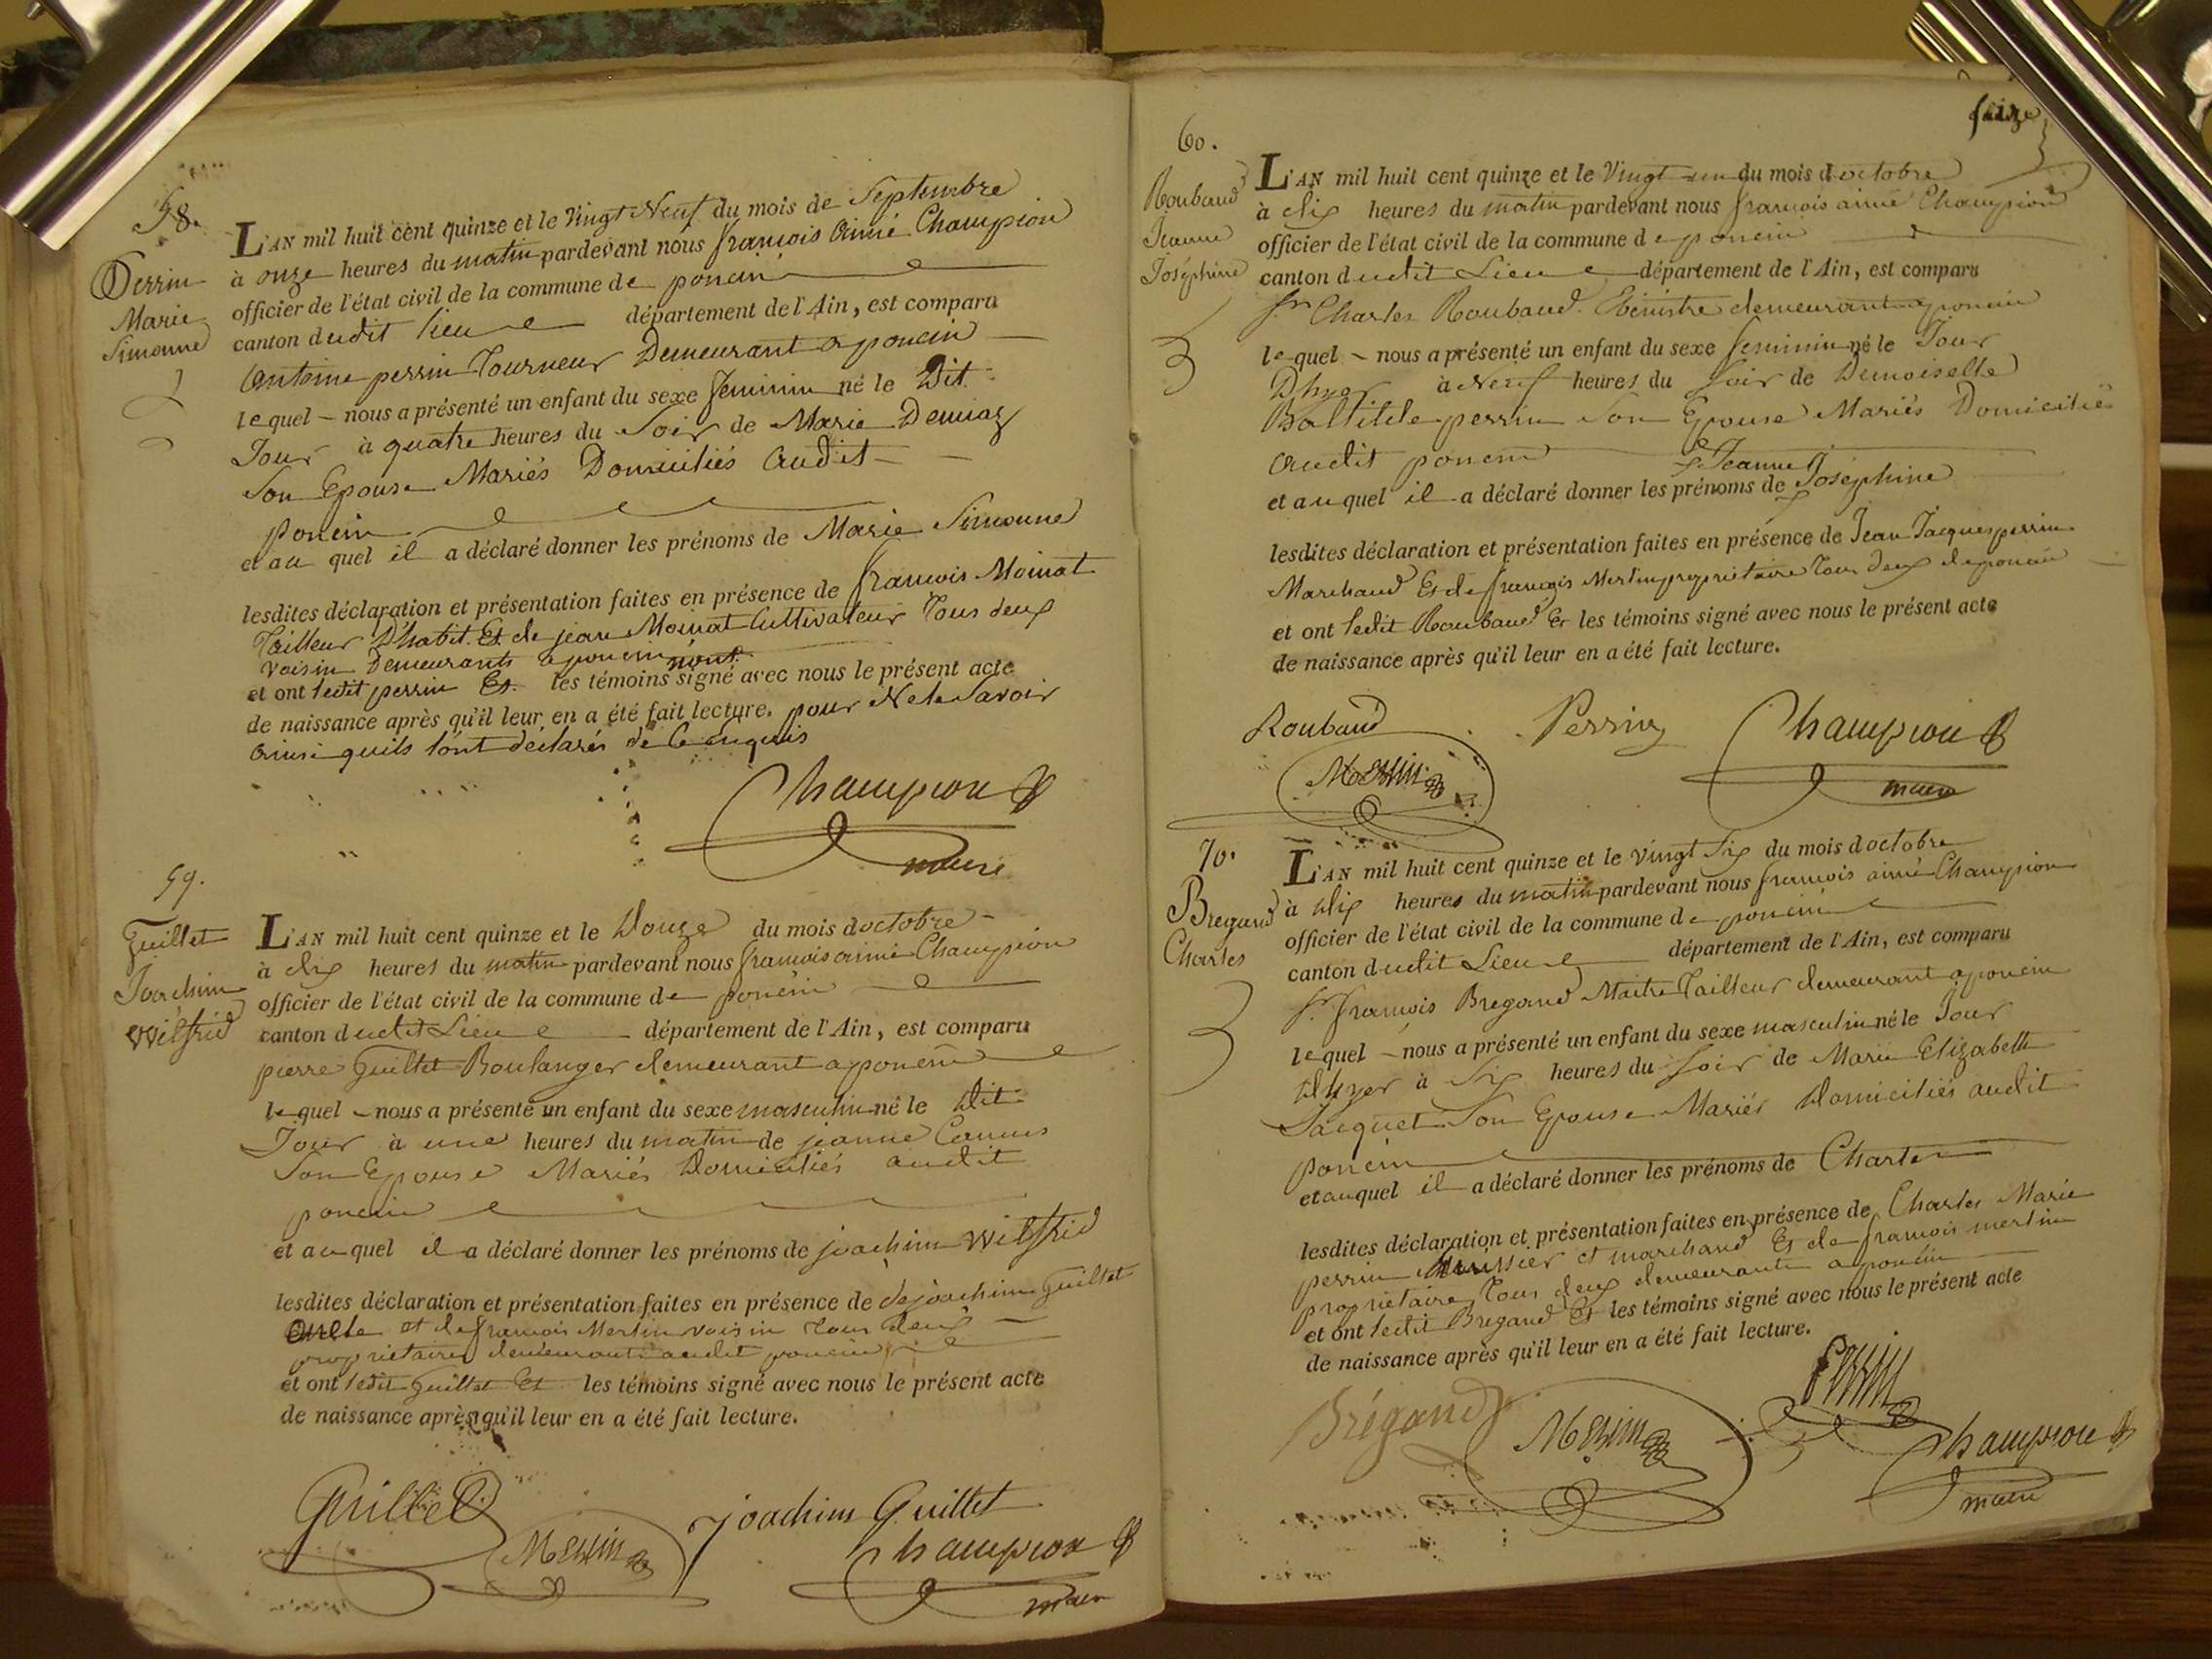 58.
Perrin
Marie
Simonne
L'AN mil huit cent quinze et le Vingt Neuf du mois de Septembre
à onze heures du matin pardevant nous françois Aimé Champion
officier de l'état civil de la commune de poncin
canton dudit lieu département de l'Ain, est comparu
Antoine perrin Tourneur Demeurant a poncin
lequel nous a présenté un enfant du sexe feminin né le Dit
Jour à quatre heures du Soir de Marie Demiaz
Son Epouse Mariés Domiciliés Audit
poncin
et au quel il a déclaré donner les prénoms de Marie Simonne
lesdites déclaration et présentation faites en présence de françois Moinat
Tailleur D'habit Et de jean Moinat Cultivateur Tous deux
voisin Demeurants a poncin n'ont
et ont ledit perrin Et les témoins signé avec nous le présent acte
de naissance après qu'il leur en a été fait lecture. pour Ne le Savoir
ainsi quils l'ont déclarés de ce enquis
Champion
maire
59.
Guillet
Joachim
Wilfrid
L'AN mil huit cent quinze et le Douze du mois doctobre
à dix heures du matin pardevant nous françois aimé Champion
officier de l'état civil de la commune de poncin
canton dudit Lieu département de l'Ain, est comparu
pierre Guillet Boulanger demeurant a poncin
lequel nous a présenté un enfant du sexe masculin né le Dit
Jour à une heures du matin de jeanne Camus
Son Epouse Mariés Domiciliés audit
poncin
et au quel il a déclaré donner les prénoms de joachim Wilfrid
lesdites déclaration et présentation faites en présence de de joachim Guillet
oncle et de françois Merlin voisin tous deux
proprietaires demeurants audit poncin
et ont ledit Guillet Et les témoins signé avec nous le présent acte
de naissance après qu'il leur en a été fait lecture.
Guillet
Merlin
joachim Guillet
Champion
maire
seize
60.
Roubaud
Jeanne
Joséphine
L'AN mil huit cent quinze et le Vingt un du mois doctobre
à dix heures du matin pardevant nous françois aimé Champion
officier de l'état civil de la commune de poncin
canton dudit Lieu département de l'Ain, est comparu
Sr. Charles Roubaud Ebéniste demeurant a poncin
lequel nous a présenté un enfant du sexe feminin né le Jour
Dhyer à Neuf heures du soir de Demoiselle
Baltilde perrin Son Epouse Mariés Domiciliés
audit poncin
Jeanne
et au quel il a déclaré donner les prénoms de Joséphine
lesdites déclaration et présentation faites en présence de Jean Jacques perrin
Marchand Et de françois Merlin proprietaire tous deux de poncin
et ont ledit Roubaud Et les témoins signé avec nous le présent acte
de naissance après qu'il leur en a été fait lecture.
Roubaud
Perrin
Champion
Merlin
maire
70.
Bregand
Charles
L'AN mil huit cent quinze et le vingt Six du mois doctobre
à dix heures du matin pardevant nous françois aimé Champion
officier de l'état civil de la commune de poncin
canton dudit Lieu département de l'Ain, est comparu
Sr. françois Bregand Maitre Tailleur demeurant a poncin
lequel nous a présenté un enfant du sexe masculin né le Jour
dhyer à Six heures du Soir de Marie Elizabeth
Jacquet Son Epouse Mariés Domiciliés audit
poncin
et au quel il a déclaré donner les prénoms de Charles
lesdites déclaration et présentation faites en présence de Charles Marie
perrin huissier et marchand Et de françois merlin
proprietaire, tous deux demeurants a poncin
et ont ledit Bregand Et les témoins signé avec nous le présent acte
de naissance après qu'il leur en a été fait lecture.
Brégand
Merlin
Perrin
Champion
maire